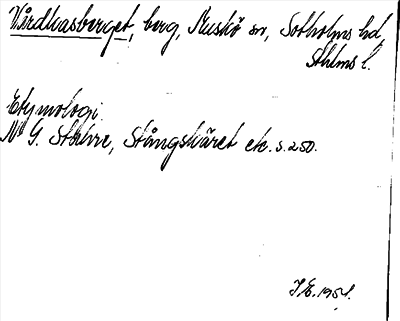 Vårdkasberget, berg, Muskö sn, Sotholms hd,
Sthlms l.
Etymologi
N. G. Stahre, Stångskäret etc. s. 250.
J E. 1951.